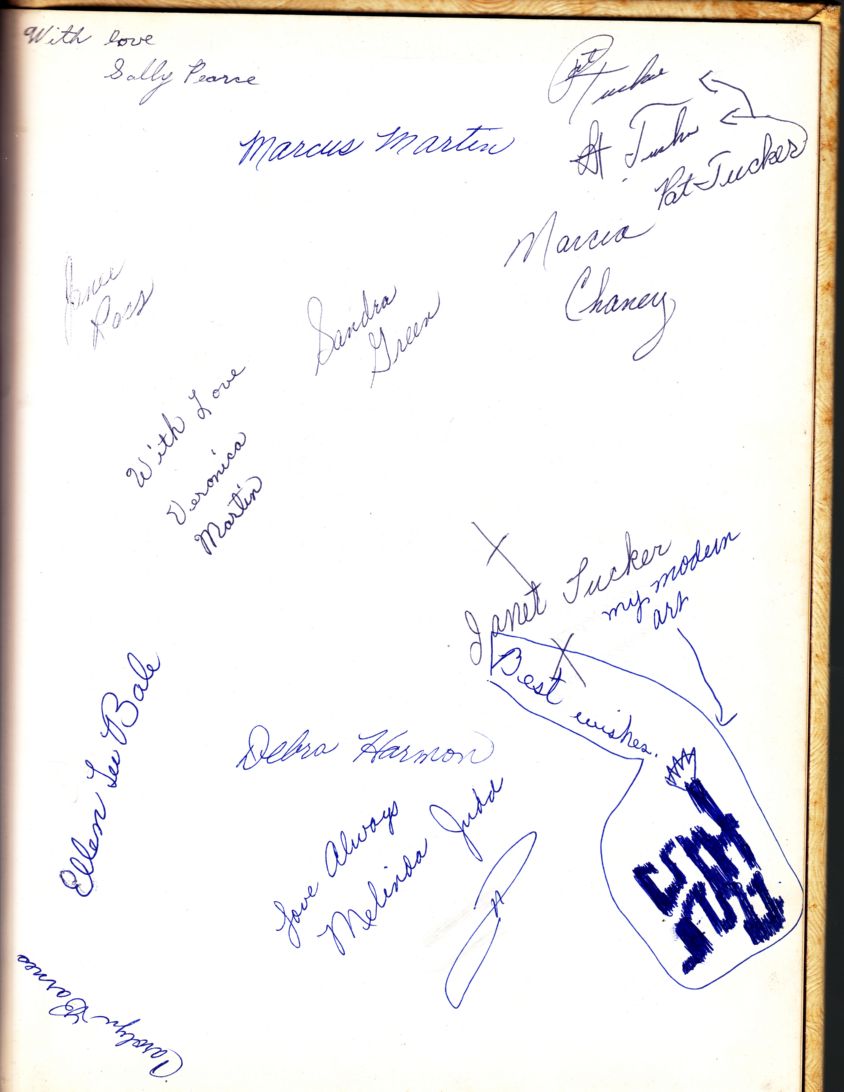 With love
Sally Pearce
Pat Tucker
Tucker
Pat Tucker
Marcus Martin
Marcia
Chaney
Janee
Ross
Sandra
Green
With Love
Veronica
Martin
Janet Tucker
my modern
art
Best wishes.
Ellen Lee Bale
Debra Harmon
Love Always
Melinda Judd
Carolyn Barnes